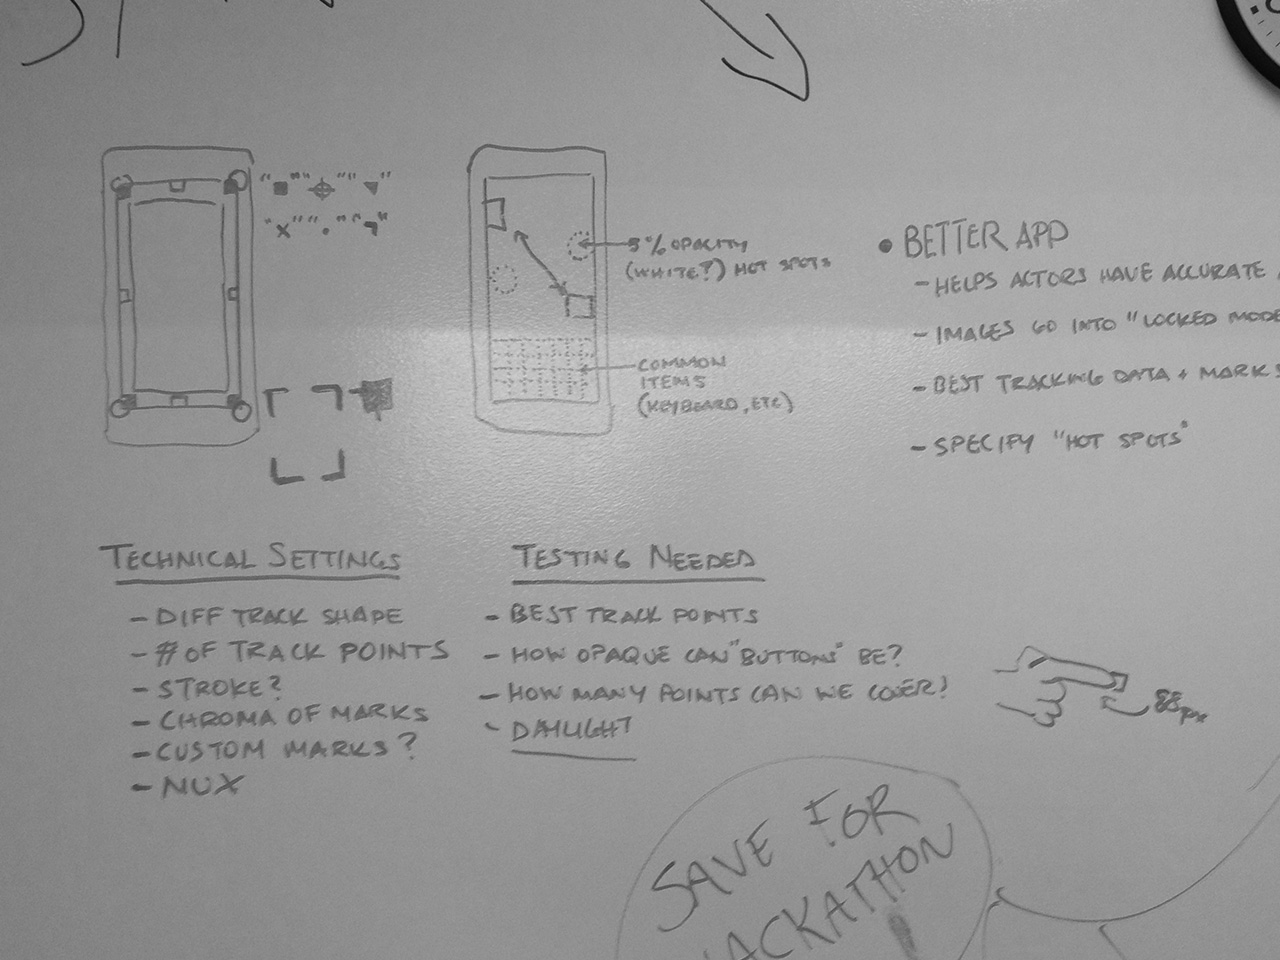 "■" "⌖" "▼"
"x" "." "¬"
5% OPACITY
(WHITE?) HOT SPOTS
COMMON
ITEMS
(KEYBOARD, ETC)
• BETTER APP
- HELPS ACTORS HAVE ACCURATE
- IMAGES GO INTO "LOCKED MODE
- BEST TRACKING DATA + MARKS
- SPECIFY "HOT SPOTS"
TECHNICAL SETTINGS
- DIFF TRACK SHAPE
- # OF TRACK POINTS
- STROKE?
- CHROMA OF MARKS
- CUSTOM MARKS?
- NUX
TESTING NEEDED
- BEST TRACK POINTS
- HOW OPAQUE CAN "BUTTONS" BE?
- HOW MANY POINTS CAN WE COVER?
- DAYLIGHT
88px
SAVE FOR
HACKATHON